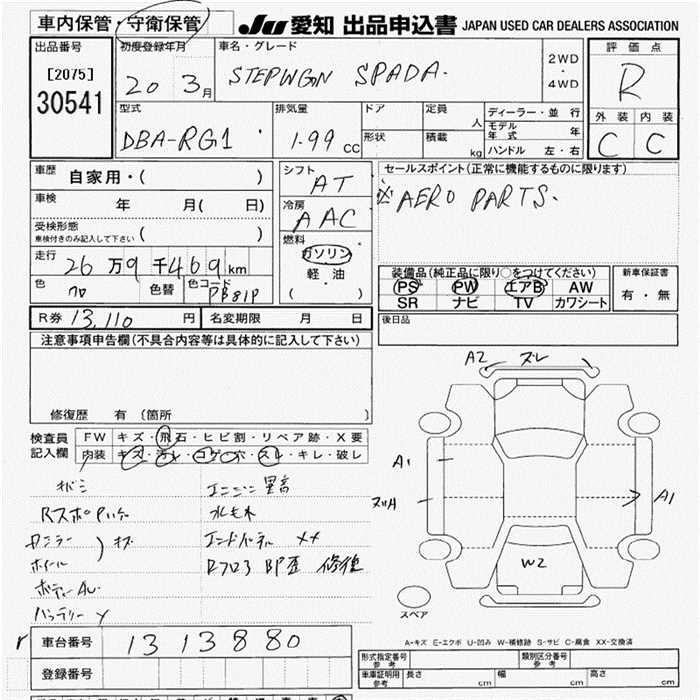 車内保管・守衛保管
JU 愛知 出品申込書 JAPAN USED CAR DEALERS ASSOCIATION
出品番号
[2075]
30541
初度登録年月
20 3月
車名・グレード
STEPWGN SPADA
2WD
・
4WD
評価点
R
外装 内装
C C
型式
DBA-RG1
排気量
1.99 cc
ドア
形状
定員
人
積載
kg
ディーラー・並行
モデル年式 年
ハンドル 左・右
車歴 自家用・( )
車検 年 月( 日)
受検形態
車検付きのみ記入して下さい ( )
走行 26万9千469km
色 色替 色コード PB81P
シフト
AT
冷房
AAC
燃料
ガソリン
軽油
( )
セールスポイント(正常に機能するものに限ります)
AERO PARTS.
装備品(純正品に限り○をつけてください)
PS PW エアB AW
SR ナビ TV カワシート
新車保証書
有・無
R券 13,110 円 名変期限 月 日
後日品
注意事項申告欄(不具合内容等は具体的に記入して下さい)
修復歴 有 (箇所 )
検査員
記入欄
FW キズ・飛石・ヒビ割・リペア跡・X要
内装 キズ・汚レ・コゲ・穴・スレ・キレ・破レ
A2 スレ
A1
A1
W2
スペア
ホイール
バッテリー
A-キズ E-エクボ U-凹み W-補修跡 S-サビ C-腐食 XX-交換済
車台番号 1313880
登録番号
形式指定番号
参考
類別区分番号
参考
車庫証明用
参考
長さ cm 幅 cm 高さ cm